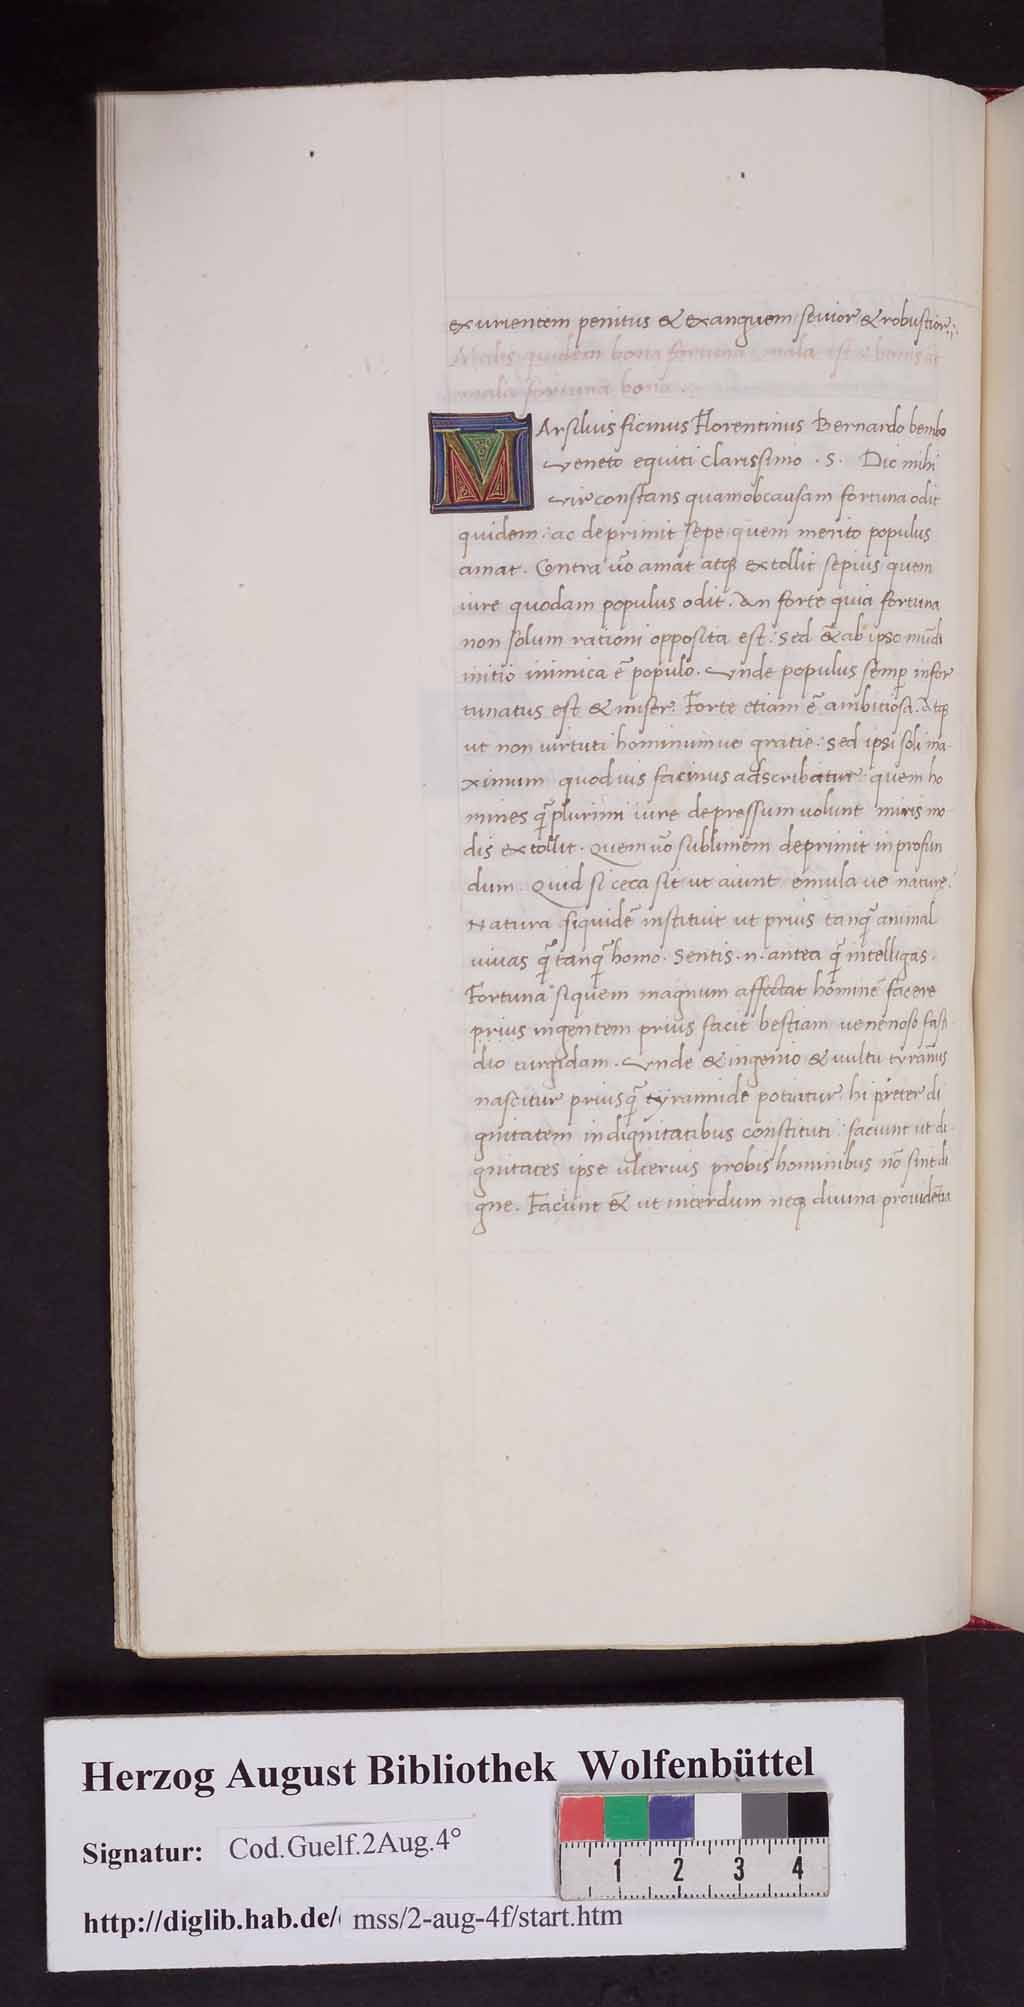 exurientem penitus & exanguem seuior & robustior.
Malis quidem bona fortuna mala est: bonis at
mala fortuna bona.
MArsilius ficinus Florentinus Bernardo bembo
Veneto equiti clarissimo . S. Dic mihi
Vir constans quamobcausam fortuna odit
quidem: ac deprimit sepe quem merito populus
amat. Contra uo᷑ amat atqꝫ extollit sepius quem
iure quodam populus odit. An forte quia fortuna
non solum rationi opposita est: sed & ab ipso mūdi
initio inimica ē populo. Vnde populus semp̱ infor
tunatus est & miser. Forte etiam ē ambitiosa. Atqꝫ
ut non uirtuti hominumue gratie: sed ipsi soli ma-
ximum quoduis facinus adscribatur: quem ho
mines q̄ plurimi iure depressum uolunt miris mo
dis extollit. Quem uō sublimem deprimit in profun
dum. Quid si ceca sit ut aiunt emula ue nature.
Natura siquidē instituit ut prius tanq̄ animal
uiuas q̄ tanq̄ homo. Sentis .n. antea q̄ intelligas.
Fortuna siquem magnum affectat hominē facere
prius ingentem prius facit bestiam uenenoso fasti
dio turgidam. Vnde & ingenio & uultu tyrānus
nascitur priusq̄ tyrannide potiatur. hi preter di
gnitatem in dignitatibus constituti: faciunt ut di-
gnitates ipse ulterius probis hominibus nō sint di
gne. Faciunt & ut interdum neqꝫ diuina prouidētia
Herzog August Bibliothek Wolfenbüttel
Signatur: Cod.Guelf.2Aug.4°
http://diglib.hab.de/ mss/2-aug-4f/start.htm
1 2 3 4